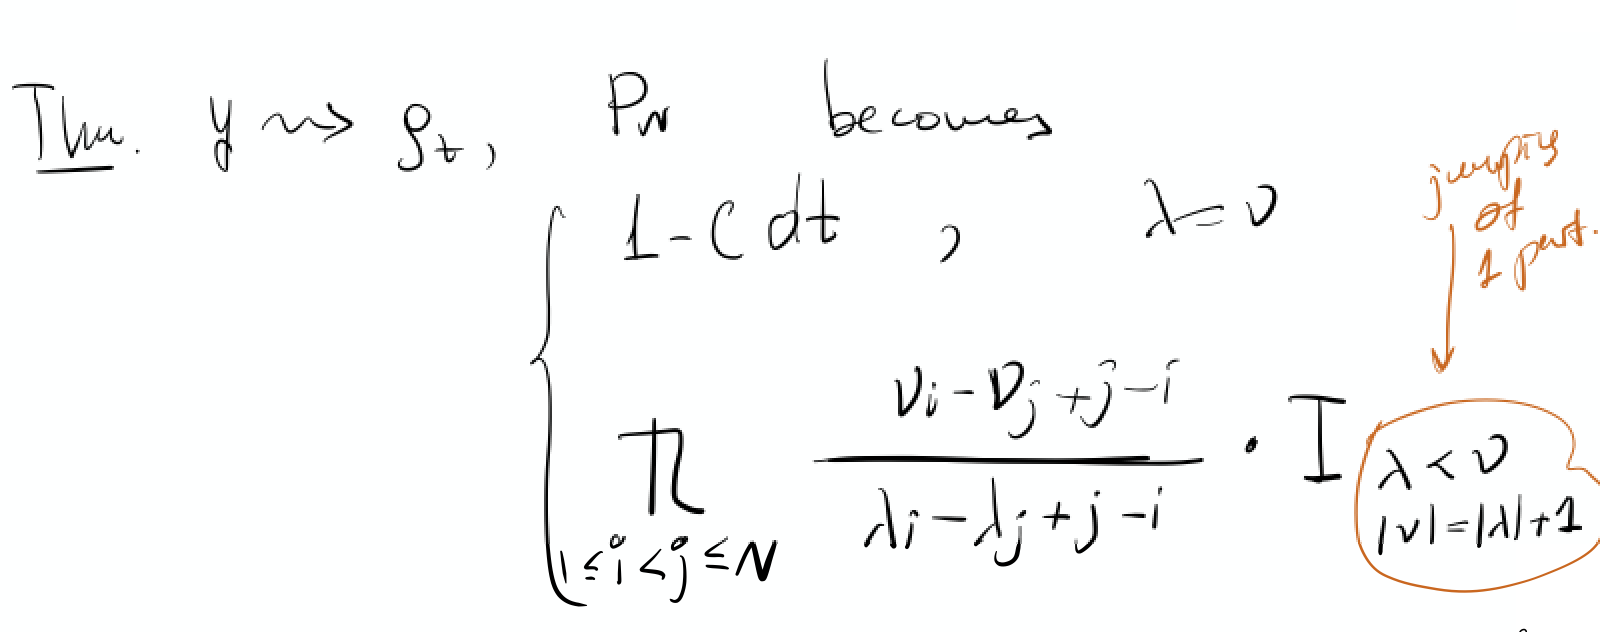 Thm. y ⇝ ρ_t, P_N becomes
{ 1 - C dt , λ = ν
∏_{1≤i<j≤N} \frac{ν_i - ν_j + j - i}{λ_i - λ_j + j - i} · I_{λ < ν, |ν| = |λ| + 1}
jumping
of
1 part.